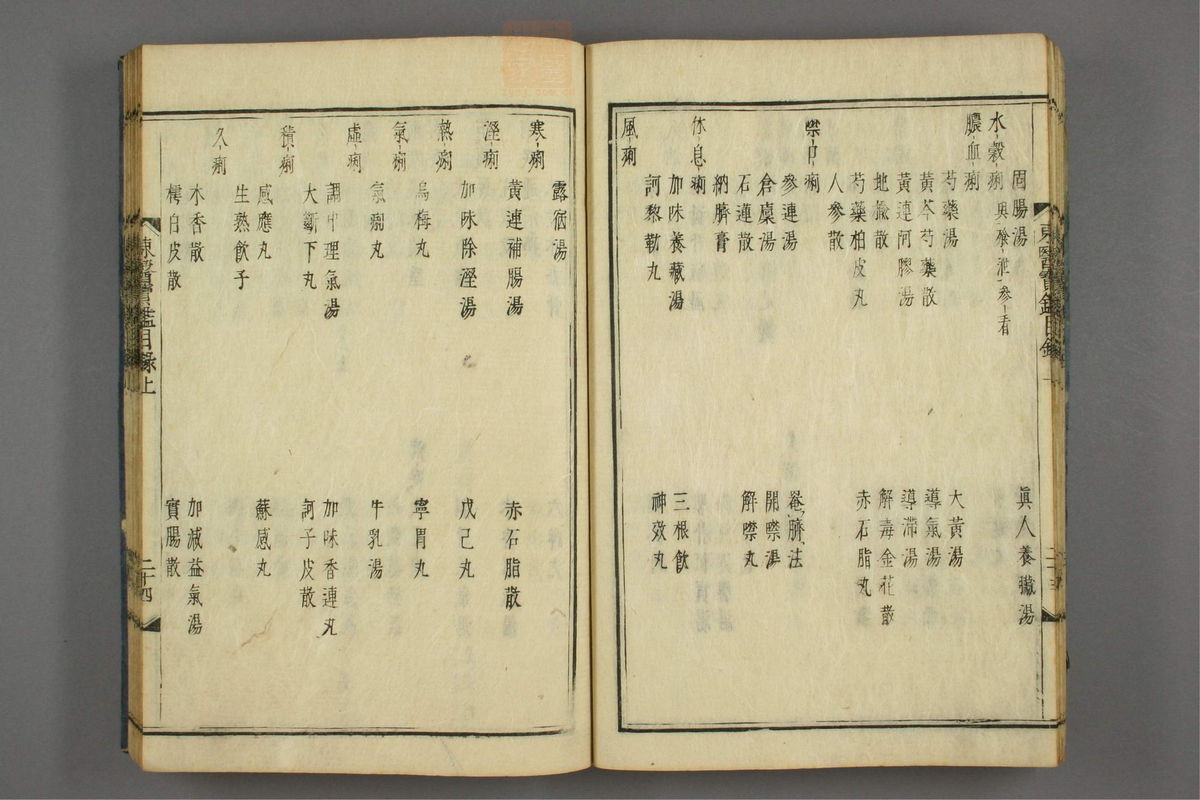 固腸湯 眞人養臟湯
水穀痢 與飱泄參看
膿血痢
芍藥湯 大黃湯
黃芩芍藥散 導氣湯
黃連阿膠湯 導滯湯
地楡散 解毒金花散
芍藥柏皮丸 赤石脂丸
人參散
噤口痢
參連湯 菴臍法
倉廩湯 開噤湯
石蓮散 解噤丸
納臍膏
休息痢
加味養藏湯 三根飮
訶黎勒丸 神效丸
風痢
露宿湯
寒痢
黃連補腸湯 赤石脂散
溼痢
加味除溼湯 戊己丸
熱痢
烏梅丸 寧胃丸
氣痢
氣痢丸 牛乳湯
虛痢
調中理氣湯 加味香連丸
大斷下丸 訶子皮散
積痢
感應丸 蘇感丸
生熟飮子
久痢
木香散 加減益氣湯
樗白皮散 實腸散
東醫寶鑑目錄上 二十四